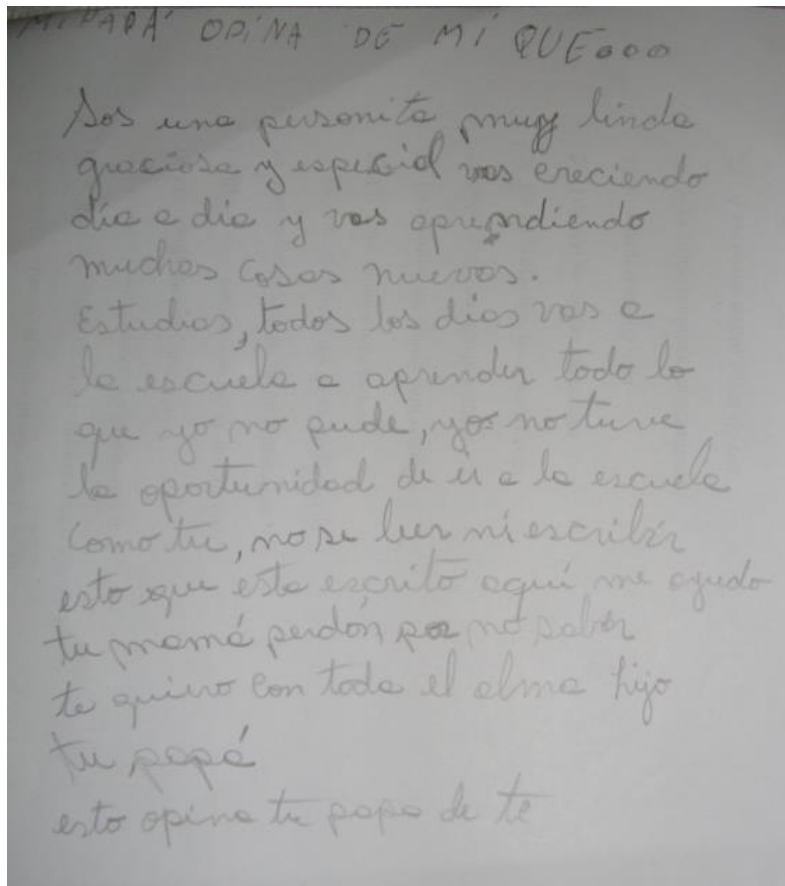 MI PAPÁ OPINA DE MÍ QUE...
Sos una personita muy linda
graciosa y especial vas creciendo
día a día y vas aprendiendo
muchas cosas nuevas.
Estudias, todos los días vas a
la escuela a aprender todo lo
que yo no pude, yo no tuve
la oportunidad de ir a la escuela
como tu, no se leer ni escribir
esto que esta escrito aquí me ayudo
tu mamá perdón por no saber
te quiero con toda el alma hijo
tu papá
esto opina tu papa de te